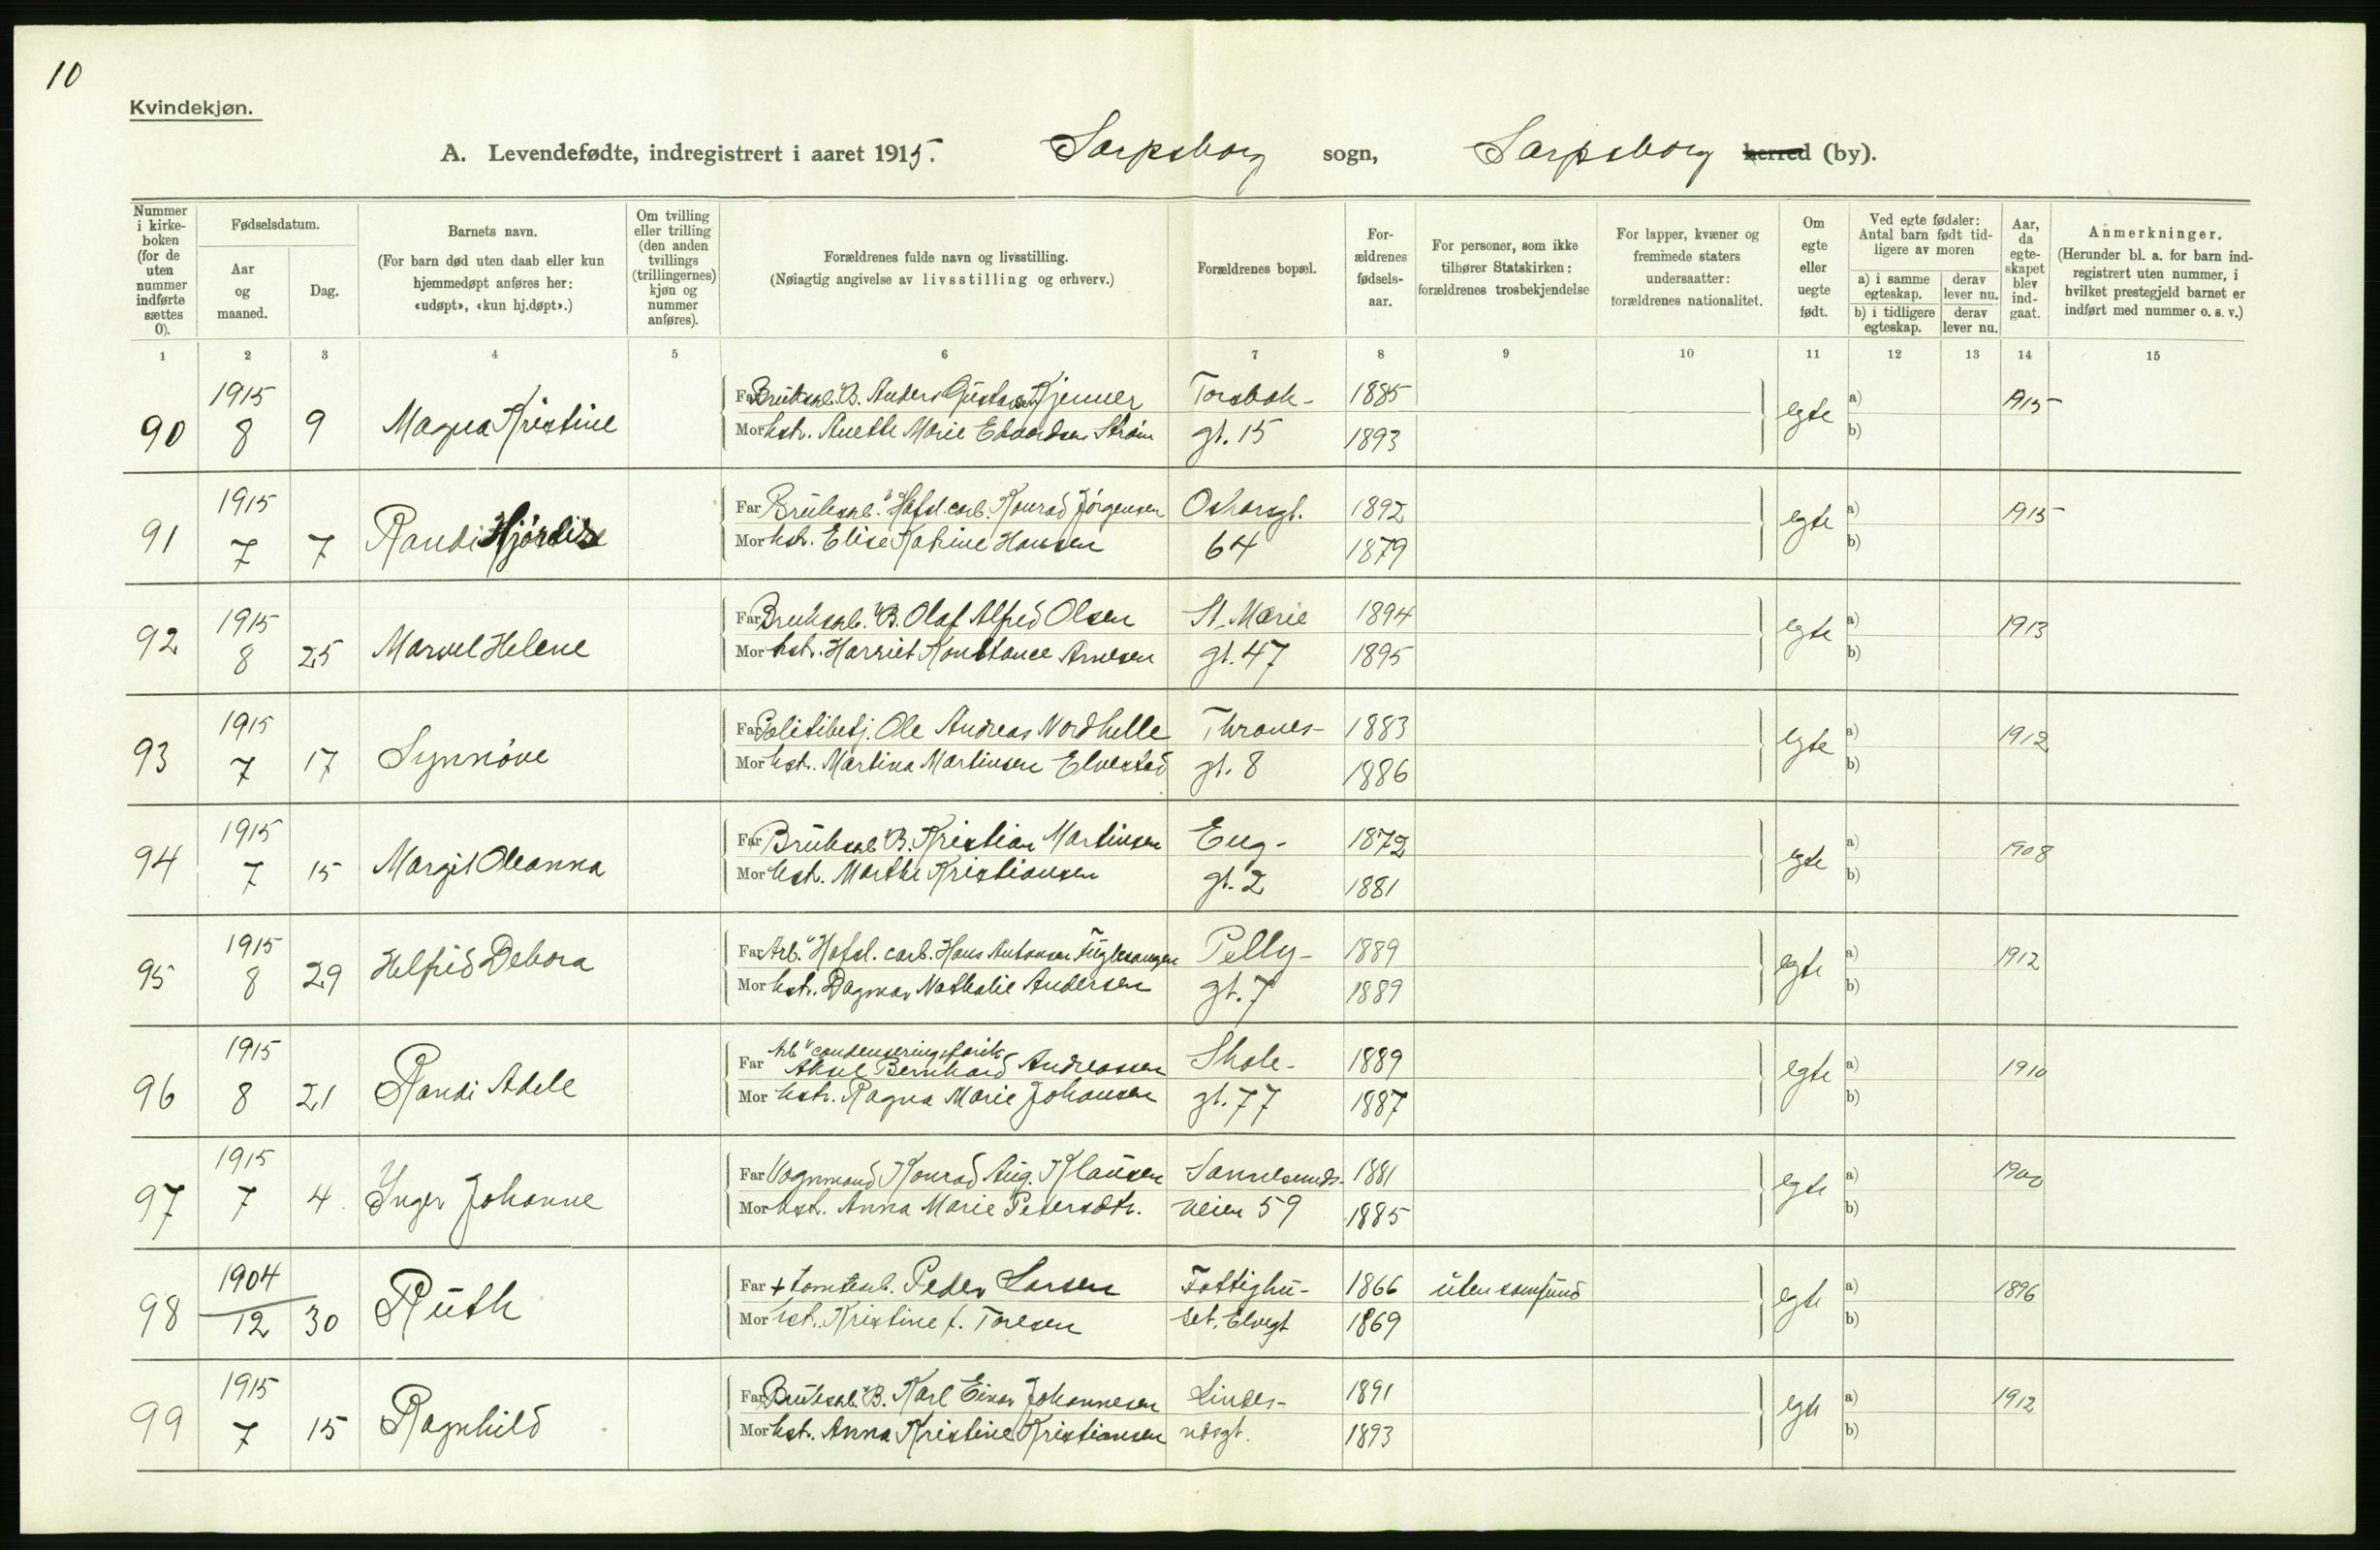 10
Kvindekjøn.
A. Levendefødte, indregistrert i aaret 1915. Sarpsborg sogn, Sarpsborg herred (by).
Nummer i kirke-boken (for de uten nummer indførte sættes 0).
Fødselsdatum.
Aar og maaned.
Dag.
Barnets navn.
(For barn død uten daab eller kun hjemmedøpt anføres her: «udøpt», «kun hj.døpt».)
Om tvilling eller trilling (den anden tvillings (trillingernes) kjøn og nummer anføres).
Forældrenes fulde navn og livsstilling.
(Nøiagtig angivelse av livsstilling og erhverv.)
Forældrenes bopæl.
For-ældrenes fødsels-aar.
For personer, som ikke tilhører Statskirken: forældrenes trosbekjendelse
For lapper, kvæner og fremmede staters undersaatter: forældrenes nationalitet.
Om egte eller uegte født.
Ved egte fødsler: Antal barn født tid-ligere av moren
a) i samme egteskap.
derav lever nu.
b) i tidligere egteskap.
derav lever nu.
Aar, da egte-skapet blev ind-gaat.
Anmerkninger.
(Herunder bl. a. for barn ind-registrert uten nummer, i hvilket prestegjeld barnet er indført med nummer o. s. v.)
1 2 3 4 5 6 7 8 9 10 11 12 13 14 15
90 1915 8 9 Magna Kristine
Far Bruksarb. "B. Anders Gustavsen Kjenner Torsbak- 1885 egte a) 1915
Mor hstr. Anette Marie Edvardsen Strøm gt. 15 1893 b)
91 1915 7 7 Randi Hjørdis
Far Bruksarb. "Hafsl. carb. Konrad Jörgensen Oskarsgt. 1892 egte a) 1915
Mor hstr. Elise Katrine Hansen 64 1879 b)
92 1915 8 25 Marvel Helene
Far Bruksarb. "B. Olaf Alfred Olsen St. Marie 1894 egte a) 1913
Mor hstr. Harriet Konstance Arnesen gt. 47 1895 b)
93 1915 7 17 Synnöve
Far Politibetj. Ole Andreas Nordhelle Thranes- 1883 egte a) 1912
Mor hstr. Martina Martinsen Elvestad gt. 8 1886 b)
94 1915 7 15 Margit Oleanna
Far Bruksarb "B. Kristian Martinsen Eng- 1872 egte a) 1908
Mor hstr. Marthe Kristiansen gt. 2 1881 b)
95 1915 8 29 Helfrid Debora
Far Arb. "Hafsl. carb. Hans Antonsen Fuglesangen Pelly- 1889 egte a) 1912
Mor hstr. Dagmar Nathalie Andersen gt. 7 1889 b)
96 1915 8 21 Randi Adele
Far Arb "condenseringsfabrik Aksel Bernhard Andreassen Skole- 1889 egte a) 1910
Mor hstr. Ragna Marie Johansen gt. 77 1887 b)
97 1915 7 4 Inger Johanne
Far Vognmand Konrad Aug. Klausen Sannesunds- 1881 egte a) 1900
Mor hstr. Anna Marie Petersdtr. veien 59 1885 b)
98 1904 12 30 Ruth
Far + tomtearb. Peder Larsen Fattighu- 1866 uten samfund egte a) 1896
Mor hstr. Kristine f. Toresen set, Elvegt 1869 b)
99 1915 7 15 Ragnhild
Far Bruksarb. "B. Karl Einar Johannesen Lindes- 1891 egte a) 1912
Mor hstr. Anna Kristine Kristiansen næsgt. 1893 b)